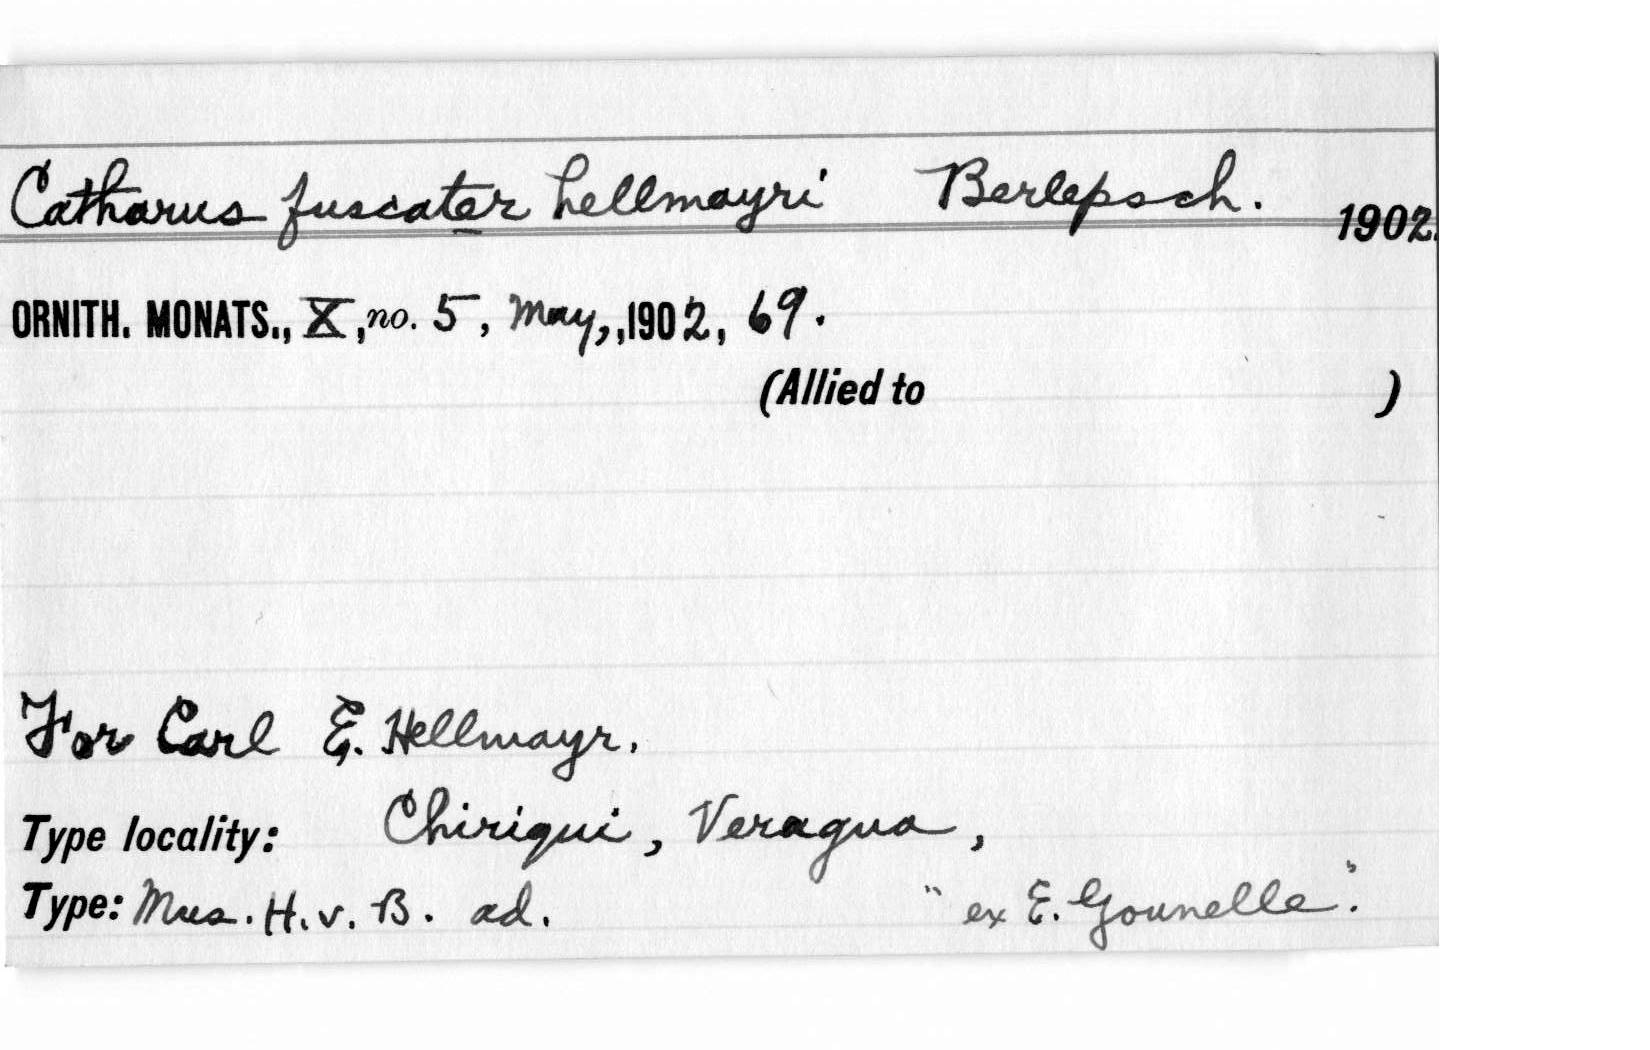 Catharus fuscater hellmayri Berlepsch. 1902.
ORNITH. MONATS., X, no. 5, May,,1902, 69.
(Allied to )
For Carl E. Hellmayr.
Type locality: Chiriqui, Veragua,
Type: Mus. H. v. B. ad. "ex E. Gounelle".